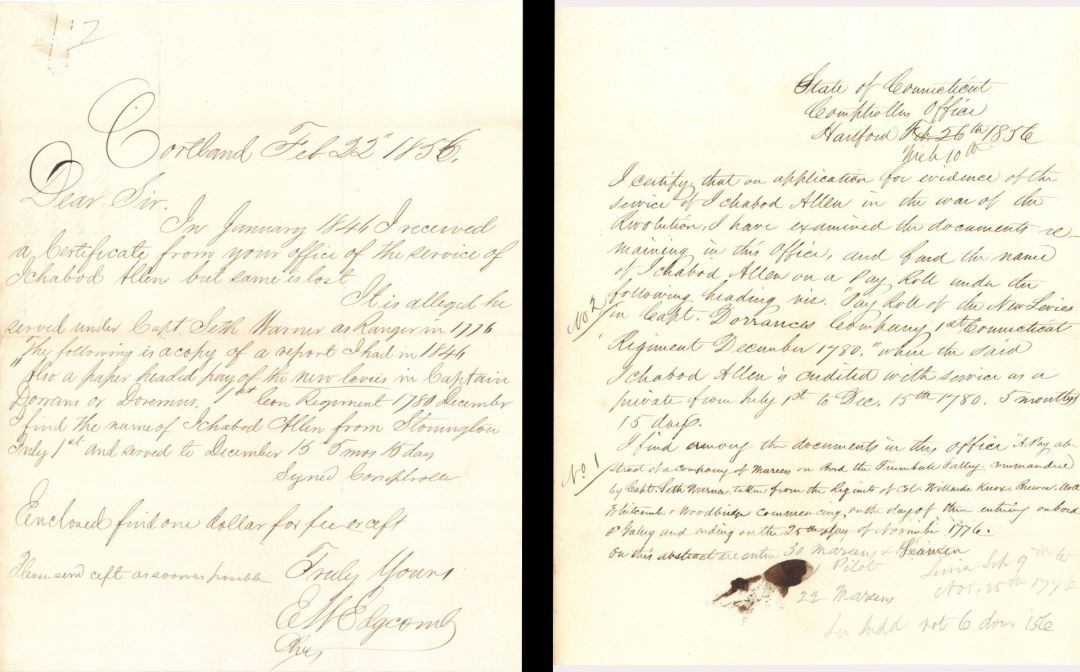 2
Cortland Feb 22" 1856.
Dear Sir.
In January 1846 I received
a Certificate from your office of the service of
Ichabod Allen but same is lost
It is alleged he
served under Capt Seth Warner as Ranger in 1776
The following is a copy of a report I had in 1846
"Also a paper headed pay of the new levies in Captain
Dorrans or Doremus. 1st Con Regiment 1780 December
I find the name of Ichabod Allen from Stonington
July 1st and served to December 15 5 mos 15 day
Signed Comptroller
Enclosed find one dollar for fee or ceft
Please send ceft as soon as possible
Truly Yours
E W Edgcomb
State of Connecticut
Comptrollers Office
Hartford Feb. 26th 1856
Mch 10th
I certify, that on application for evidence of the
service of Ichabod Allen in the war of the
Revolution, I have examined the documents re-
maining in this Office, and find the name
of Ichabod Allen on a Pay Roll under the
following heading viz. "Pay Roll of the New Levies
No 2
in Capt. Dorrances Company 1st Connecticut
Regiment December 1780." where the said
Ichabod Allen is credited with service as a
private from July 1st to Dec. 15th 1780. 5 months
15 days.
I find among the documents in this office "A Pay ab-
No. 1
stract of a company of Mareens on Bord the Trumbule Galley, commanded
by Capt. Seth Warner taken from the Regints of Cols Willards Knox Brewer
Whitcomb & Woodbridge commencing on the day of their entring on bord
Galey and ending on the 25th day of November 1776.
On this abstract are entire 30 Mareens & Seamen
1 Pilot
22 Mareens
Nov. 25th 1776
not 6 dos. 156